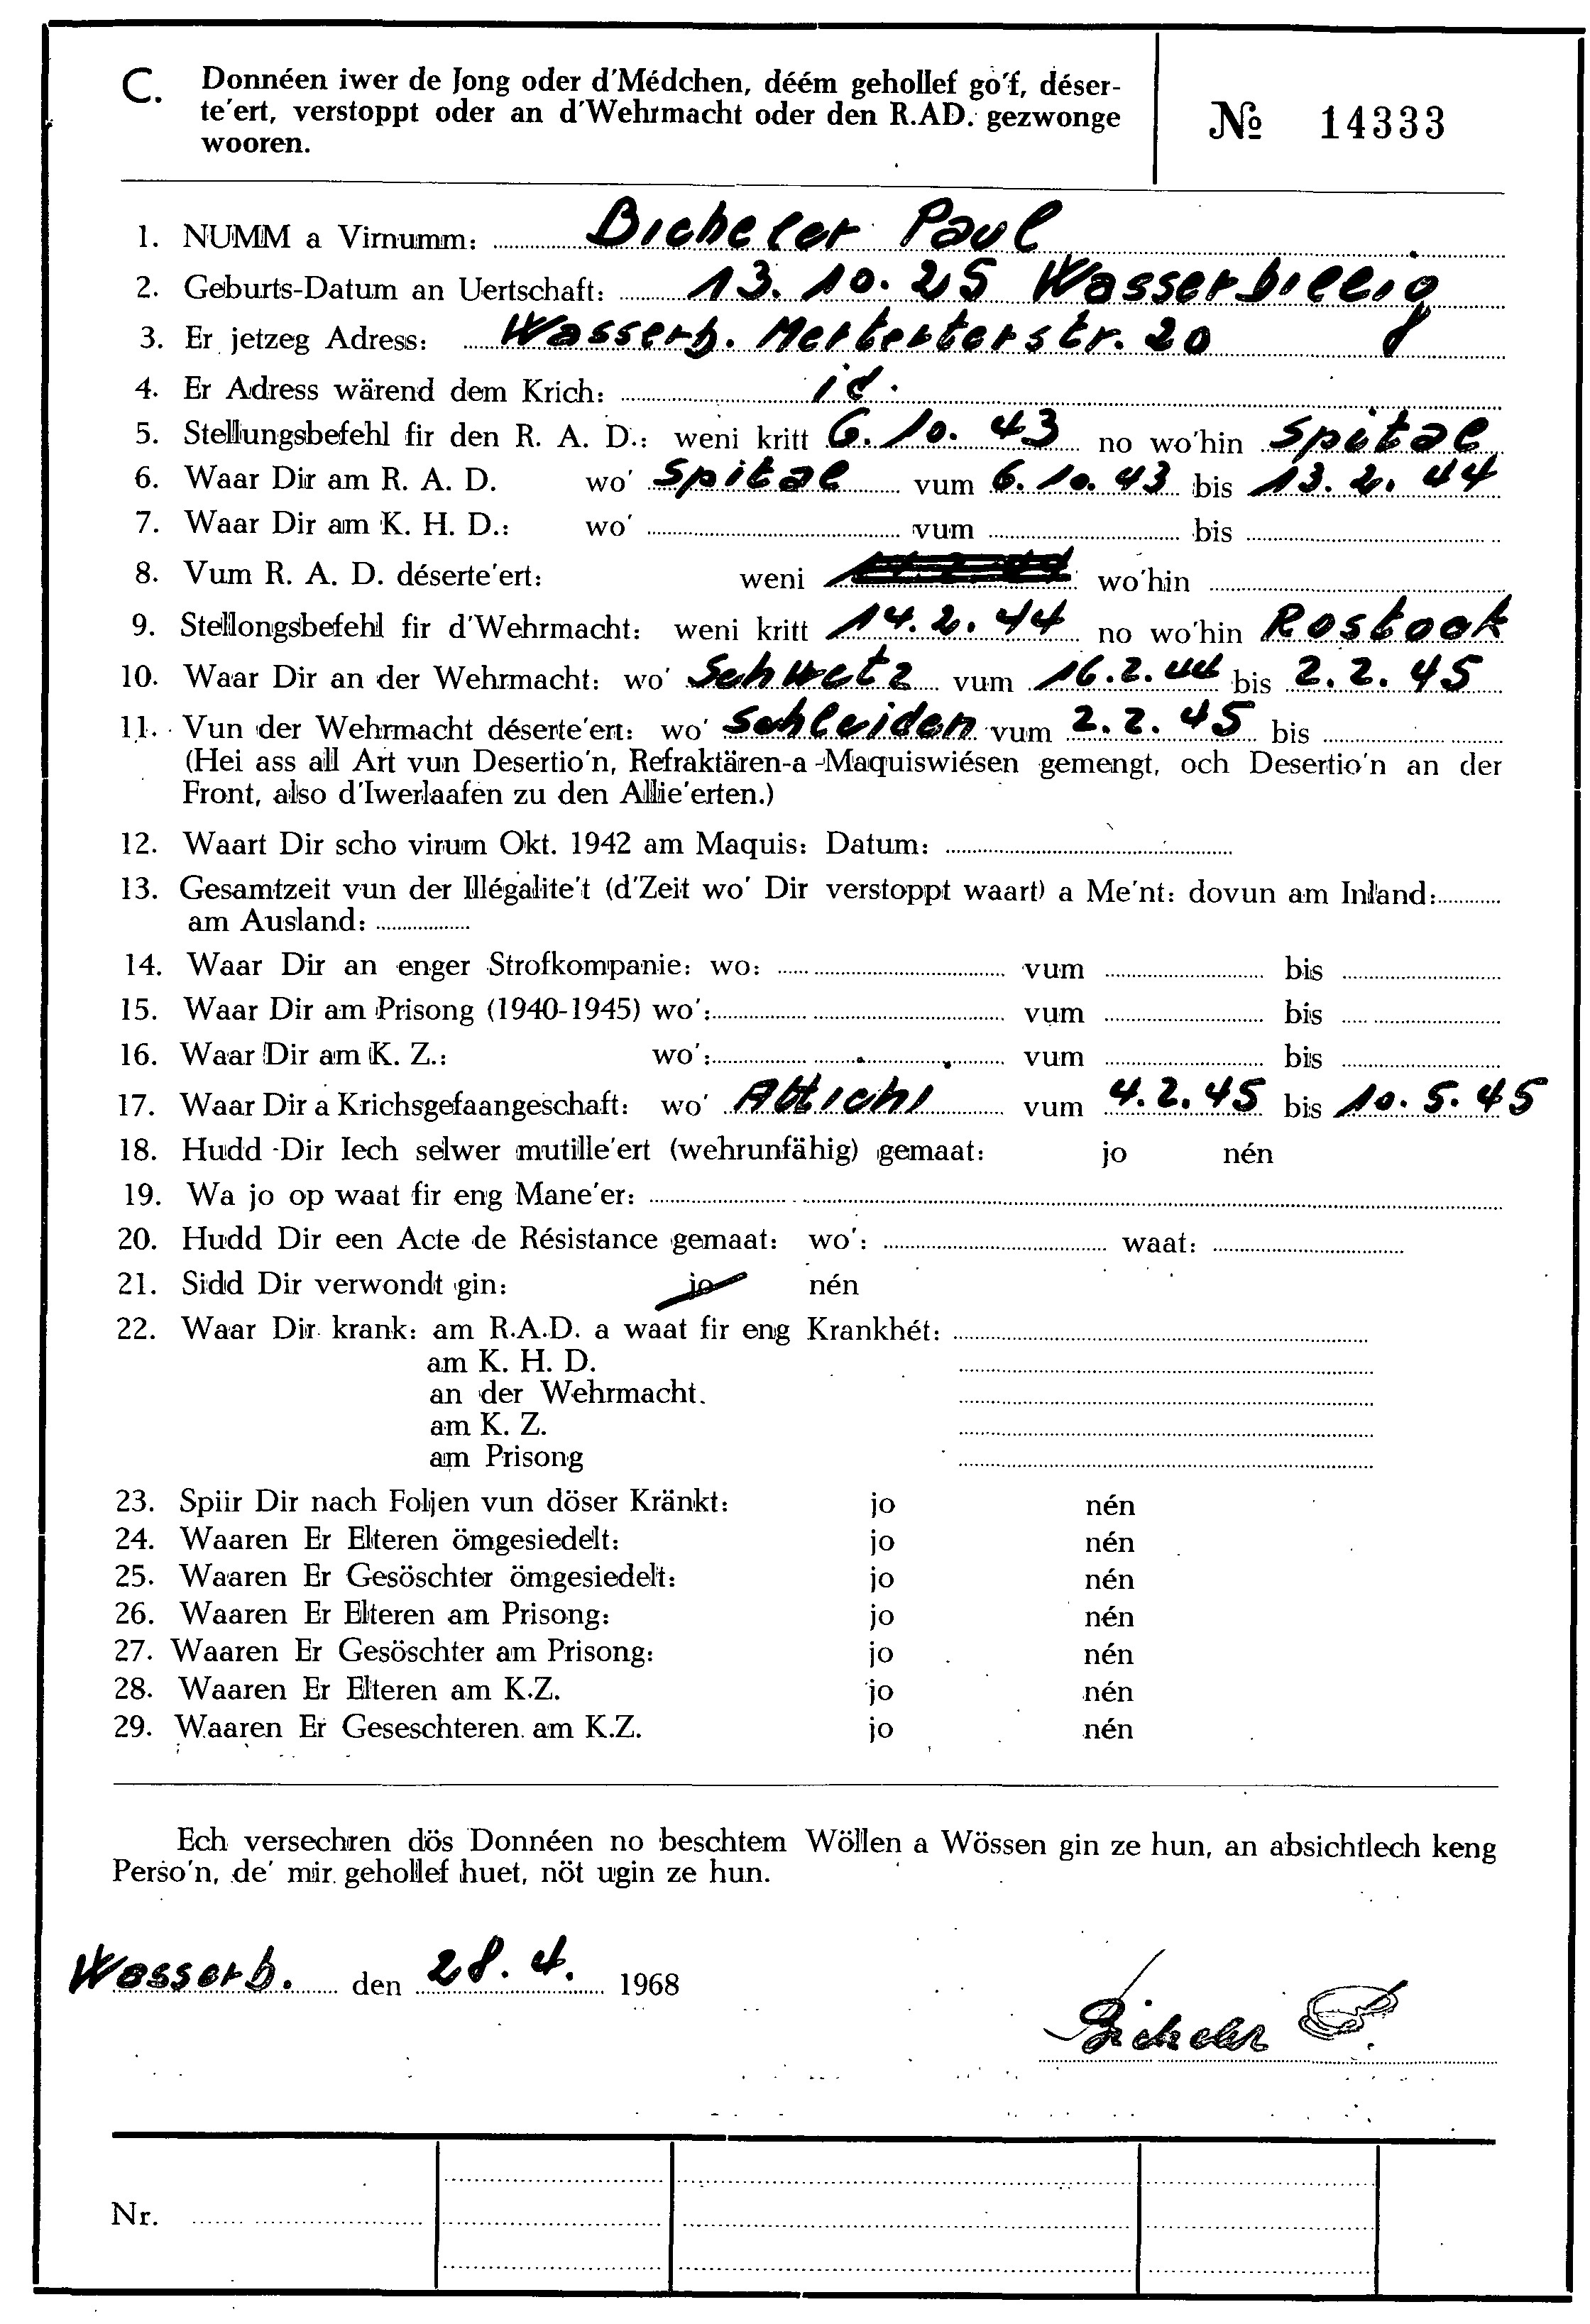 C. Donnéen iwer de Jong oder d'Médchen, déém gehollef go'f, déser-
te'ert, verstoppt oder an d'Wehrmacht oder den R.AD. gezwonge
wooren.
№ 14333
1. NUMM a Virnumm: Bicheler Paul
2. Geburts-Datum an Uertschaft: 13.10.25 Wasserbillig
3. Er jetzeg Adress: Wasserb. Merterterstr. 20
4. Er Adress wärend dem Krich: id.
5. Stellungsbefehl fir den R. A. D.: weni kritt 6.10.43 no wo'hin Spital
6. Waar Dir am R. A. D. wo' Spital vum 6.10.43 bis 13.2.44
7. Waar Dir am K. H. D.: wo' vum bis
8. Vum R. A. D. déserte'ert: weni wo'hin
9. Stellongsbefehl fir d'Wehrmacht: weni kritt 14.2.44 no wo'hin Rostook
10. Waar Dir an der Wehrmacht: wo' Schwetz vum 16.2.44 bis 2.2.45
11. Vun der Wehrmacht déserte'ert: wo' Schleiden vum 2.2.45 bis
(Hei ass all Art vun Desertio'n, Refraktären-a-Maquiswiésen gemengt, och Desertio'n an der
Front, also d'Iwerlaafen zu den Allie'erten.)
12. Waart Dir scho virum Okt. 1942 am Maquis: Datum:
13. Gesamtzeit vun der Illégalite't (d'Zeit wo' Dir verstoppt waart) a Me'nt: dovun am Inland:
am Ausland:
14. Waar Dir an enger Strofkompanie: wo: vum bis
15. Waar Dir am Prisong (1940-1945) wo': vum bis
16. Waar Dir am K. Z.: wo': vum bis
17. Waar Dir a Krichsgefaangeschaft: wo' Attichi vum 4.2.45 bis 10.5.45
18. Hudd Dir Iech selwer mutille'ert (wehrunfähig) gemaat: jo nén
19. Wa jo op waat fir eng Mane'er:
20. Hudd Dir een Acte de Résistance gemaat: wo': waat:
21. Sidd Dir verwondt gin: jo nén
22. Waar Dir krank: am R.A.D. a waat fir eng Krankhét:
am K. H. D.
an der Wehrmacht.
am K. Z.
am Prisong
23. Spiir Dir nach Foljen vun döser Kränkt: jo nén
24. Waaren Er Elteren ömgesiedelt: jo nén
25. Waaren Er Gesöschter ömgesiedelt: jo nén
26. Waaren Er Elteren am Prisong: jo nén
27. Waaren Er Gesöschter am Prisong: jo nén
28. Waaren Er Elteren am K.Z. jo nén
29. Waaren Er Geseschteren am K.Z. jo nén
Ech versechren dös Donnéen no beschtem Wöllen a Wössen gin ze hun, an absichtlech keng
Perso'n, de' mir gehollef huet, nöt ugin ze hun.
Wasserb. den 28.4. 1968
Bicheler P.
Nr.